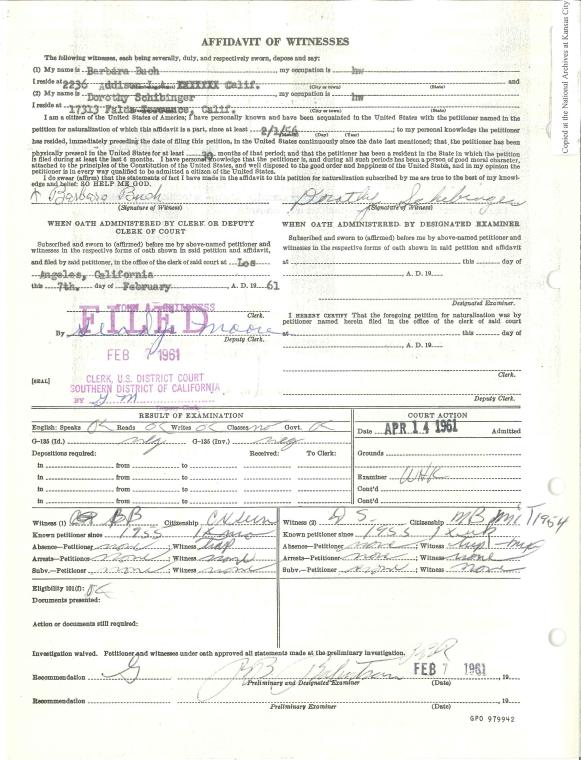 Copied at the National Archives at Kansas City
AFFIDAVIT OF WITNESSES
The following witnesses, each being severally, duly, and respectively sworn, depose and say:
(1) My name is Barbara Buch, my occupation is hw
I reside at 2236 Addison XXXXXX Calif. and
(City or town) (State)
(2) My name is Dorothy Schibinger, my occupation is hw
I reside at 17313 Falda Torrance, Calif.
(City or town) (State)
I am a citizen of the United States of America; I have personally known and have been acquainted in the United States with the petitioner named in the
petition for naturalization of which this affidavit is a part, since at least 2/1/56; to my personal knowledge the petitioner
(Month) (Day) (Year)
has resided, immediately preceding the date of filing this petition, in the United States continuously since the date last mentioned; that, the petitioner has been
physically present in the United States for at least months of that period; and that the petitioner has been a resident in the State in which the petition
is filed during at least the last 6 months. I have personal knowledge that the petitioner is, and during all such periods has been a person of good moral character,
attached to the principles of the Constitution of the United States, and well disposed to the good order and happiness of the United States, and in my opinion the
petitioner is in every way qualified to be admitted a citizen of the United States.
I do swear (affirm) that the statements of fact I have made in the affidavit to this petition for naturalization subscribed by me are true to the best of my knowl-
edge and belief: SO HELP ME GOD.
Barbara Buch Dorothy Schibinger
(Signature of Witness) (Signature of Witness)
WHEN OATH ADMINISTERED BY CLERK OR DEPUTY
CLERK OF COURT
Subscribed and sworn to (affirmed) before me by above-named petitioner and
witnesses in the respective forms of oath shown in said petition and affidavit,
and filed by said petitioner, in the office of the clerk of said court at Los
Angeles, California
this 7th. day of February, A. D. 19 61
JOHN A. CHILDRESS
Clerk.
By Moore
Deputy Clerk.
FILED
FEB 7 1961
CLERK, U.S. DISTRICT COURT
SOUTHERN DISTRICT OF CALIFORNIA
BY G M
Deputy Clerk
[SEAL]
WHEN OATH ADMINISTERED BY DESIGNATED EXAMINER
Subscribed and sworn to (affirmed) before me by above-named petitioner and
witnesses in the respective forms of oath shown in said petition and affidavit
at this day of
, A. D. 19
Designated Examiner.
I HEREBY CERTIFY That the foregoing petition for naturalization was by
petitioner named herein filed in the office of the clerk of said court
at this day of
, A. D. 19
Clerk.
Deputy Clerk.
RESULT OF EXAMINATION
English: Speaks OK Reads OK Writes OK Classes no Govt. OK
G-135 (Id.) neg G-135 (Inv.) neg
Depositions required: Received: To Clerk:
in from to
in from to
in from to
in from to
COURT ACTION
Date APR 14 1961 Admitted
Grounds
Examiner WHK
Cont'd
Cont'd
Witness (1) BB Citizenship
Known petitioner since 1955
Absence—Petitioner none; Witness
Arrests—Petitioner none; Witness none
Subv.—Petitioner none; Witness none
Witness (2) D S. Citizenship 1954
Known petitioner since 1955
Absence—Petitioner none; Witness
Arrests—Petitioner none; Witness none
Subv.—Petitioner none; Witness none
Eligibility 101(f): OK
Documents presented:
Action or documents still required:
Investigation waived. Petitioner and witnesses under oath approved all statements at the preliminary investigation.
Recommendation G FEB 7 1961, 19
Preliminary and Designated Examiner (Date)
Recommendation , 19
Preliminary Examiner (Date)
GPO 979942